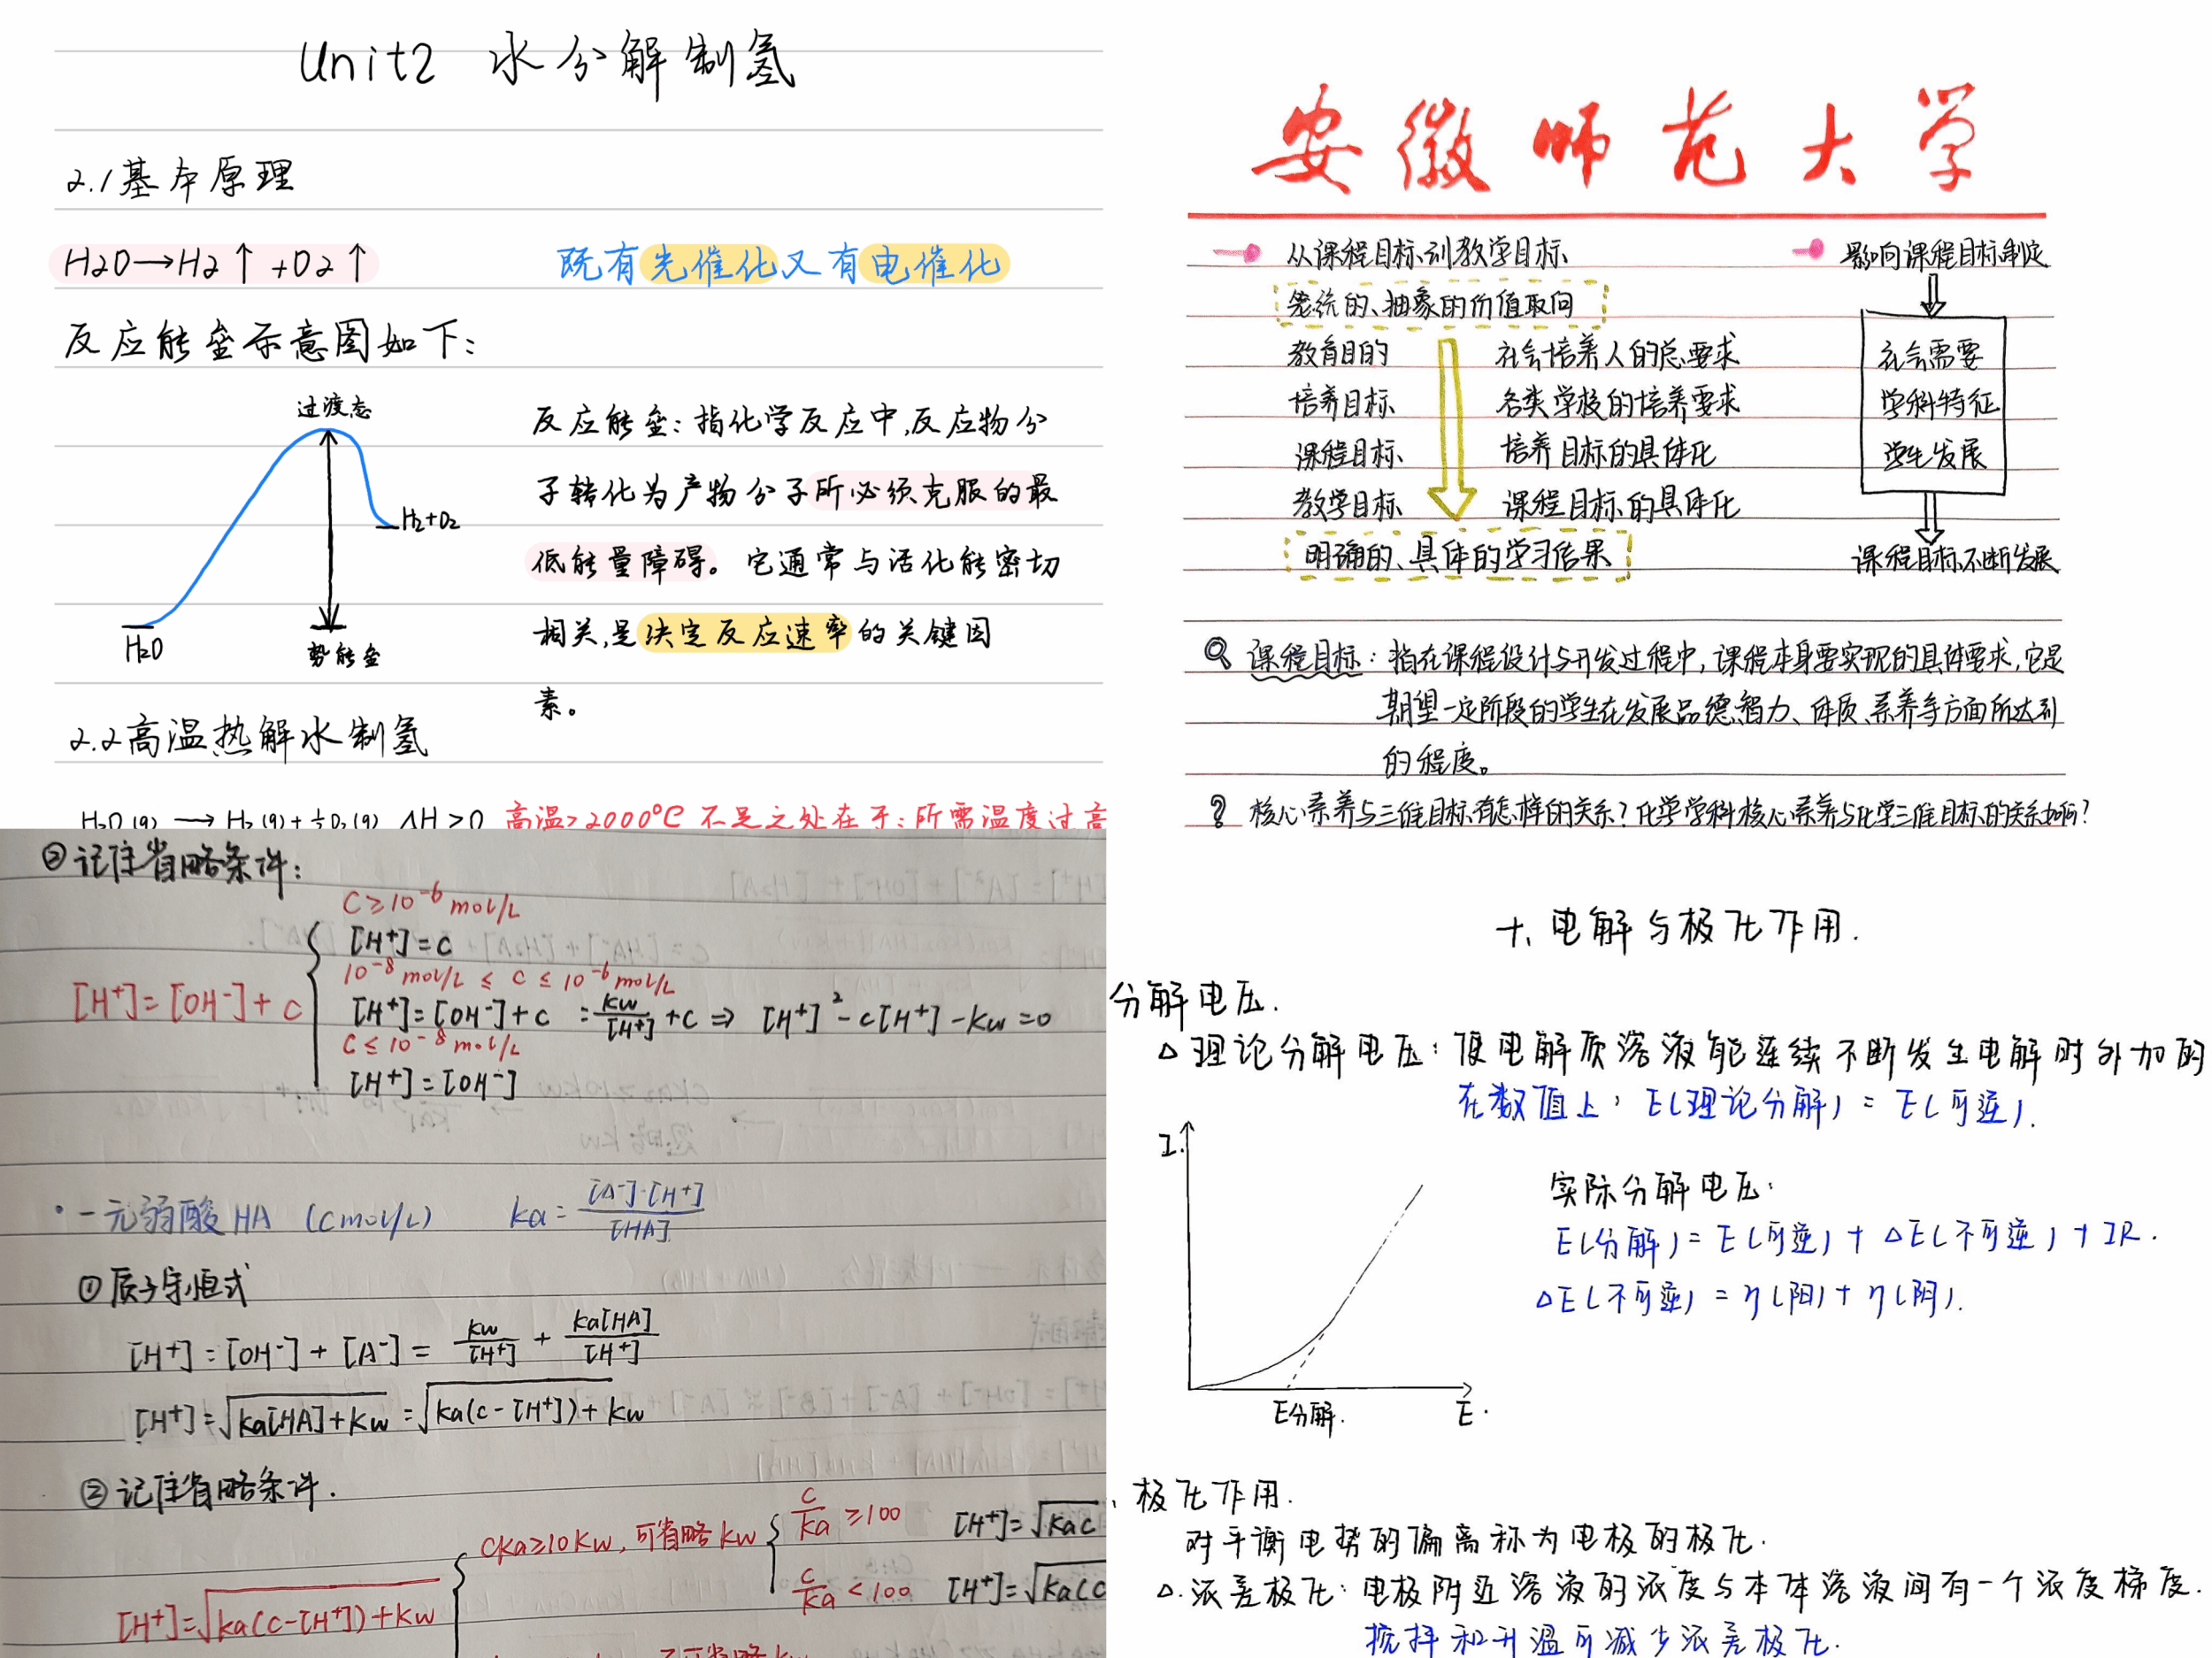 Unit2 水分解制氢
2.1基本原理
H2O→H2↑+O2↑
既有光催化又有电催化
反应能垒示意图如下：
过渡态
H2+O2
H2O
势能垒
反应能垒：指化学反应中,反应物分
子转化为产物分子所必须克服的最
低能量障碍。它通常与活化能密切
相关,是决定反应速率的关键因
素。
2.2高温热解水制氢
H2O(g)→H2(g)+½O2(g) ΔH>0 高温>2000℃ 不足之处在于:所需温度过高
安徽师范大学
从课程目标到教学目标
笼统的、抽象的价值取向
教育目的 社会培养人的总要求
培养目标 各类学校的培养要求
课程目标 培养目标的具体化
教学目标 课程目标的具体化
明确的、具体的学习结果
影响课程目标制定
社会需要
学科特征
学生发展
课程目标不断发展
课程目标：指在课程设计与开发过程中，课程本身要实现的具体要求,它是
期望一定阶段的学生在发展品德、智力、体质、素养等方面所达到
的程度。
? 核心素养与三维目标有怎样的关系？化学学科核心素养与化学三维目标的关系如何？
②记住省略条件：
C≥10⁻⁶ mol/L
[H⁺]=C
10⁻⁸ mol/L ≤ C ≤ 10⁻⁶ mol/L
[H⁺]=[OH⁻]+C
[H⁺]=[OH⁻]+C = Kw/[H⁺] +C ⇒ [H⁺]²-C[H⁺]-Kw=0
C≤10⁻⁸ mol/L
[H⁺]=[OH⁻]
·一元弱酸 HA (C mol/L) Ka=[A⁻]·[H⁺]/[HA]
①质子守恒式
[H⁺]=[OH⁻]+[A⁻]= Kw/[H⁺] + Ka[HA]/[H⁺]
[H⁺]=√(Ka[HA]+Kw)=√(Ka(C-[H⁺])+Kw)
②记住省略条件.
CKa≥10Kw,可省略Kw
C/Ka ≥100 [H⁺]=√KaC
C/Ka <100 [H⁺]=√Ka(C
[H⁺]=√(Ka(C-[H⁺])+Kw)
十、电解与极化作用.
分解电压.
△理论分解电压：使电解质溶液能连续不断发生电解时外加的
在数值上，E(理论分解)=E(可逆).
I.
E分解.
E.
实际分解电压：
E(分解)=E(可逆)+ΔE(不可逆)+IR.
ΔE(不可逆)=η(阳)+η(阴).
、极化作用.
对平衡电势的偏离称为电极的极化.
△.浓差极化：电极附近溶液的浓度与本体溶液间有一个浓度梯度.
搅拌和升温可减少浓差极化.